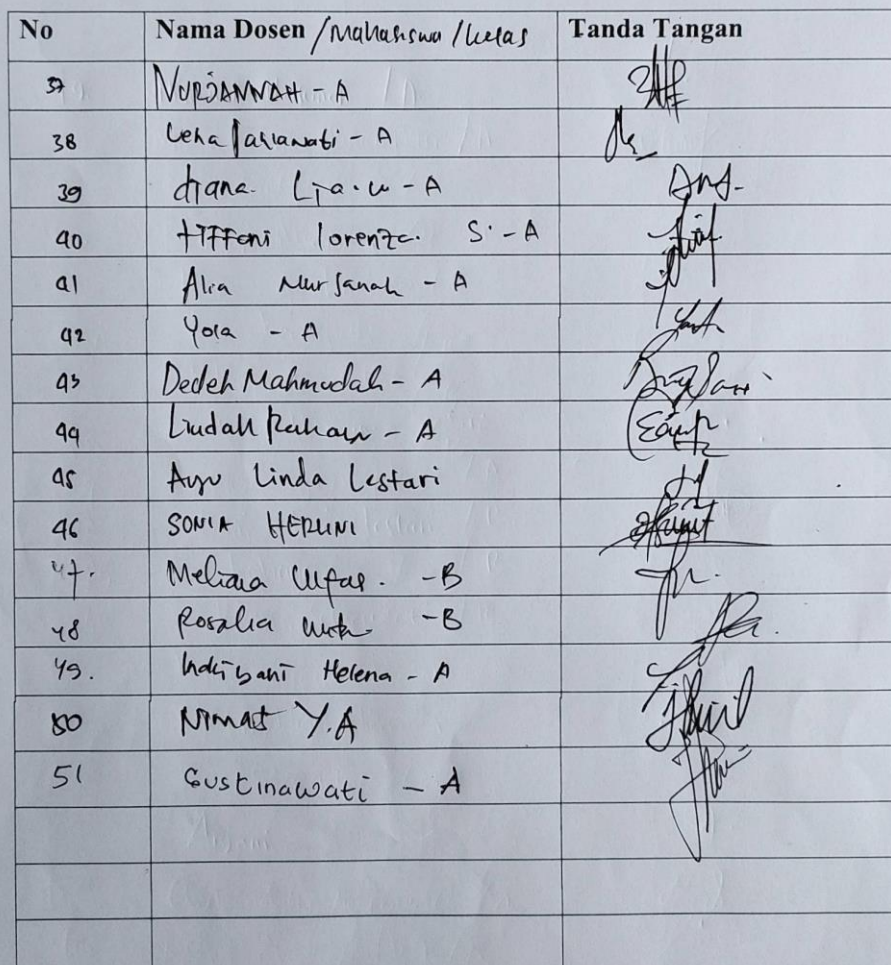 No Nama Dosen /Mahasiswa /kelas Tanda Tangan
37 NURJANNAH - A
38 Leha - A
39 diana. Lia.w - A
40 tiffani lorenza. S. - A
41 Alia Nurjanah - A
42 Yola - A
43 Dedeh Mahmudah - A
44 Lindah - A
45 Ayu Linda Lestari
46 SONIA HERLINI
47. Meliana - B
48 Rosalia - B
49. Helena - A
50 Nimas Y.A
51 Gustinawati - A